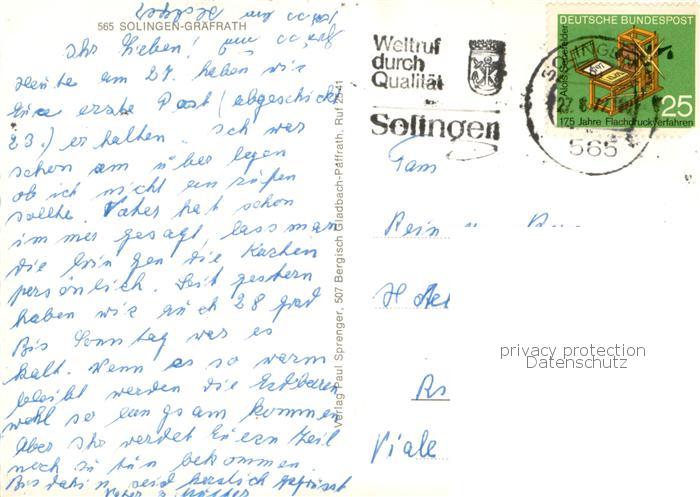 565 SOLINGEN-GRÄFRATH
Ihr Lieben!
Heute am 27. haben wir
Eure erste Post (abgeschickt
23.) erhalten. Ich war
schon am überlegen
ob ich nicht anrufen
sollte. Vater hat schon
immer gesagt, lass man
die bringen die Karten
persönlich. Seit gestern
haben wir auch 28 grad
Bis Sonntag war es
kalt. Wenn es so warm
bleibt werden die Erdbeeren
wohl so langsam kommen
Aber Ihr werdet Euern Teil
noch zu tun bekommen.
Bis dahin seid herzlich gegrüsst
Vater u. Mutter
Verlag Paul Sprenger, 507 Bergisch Gladbach-Paffrath, Ruf 2541
Weltruf
durch
Qualität
Solingen
SOLINGEN
27.6.72
565
DEUTSCHE BUNDESPOST
Alois Senefelder
25
175 Jahre Flachdruckverfahren
Fam
Hotel
Viale
privacy protection
Datenschutz